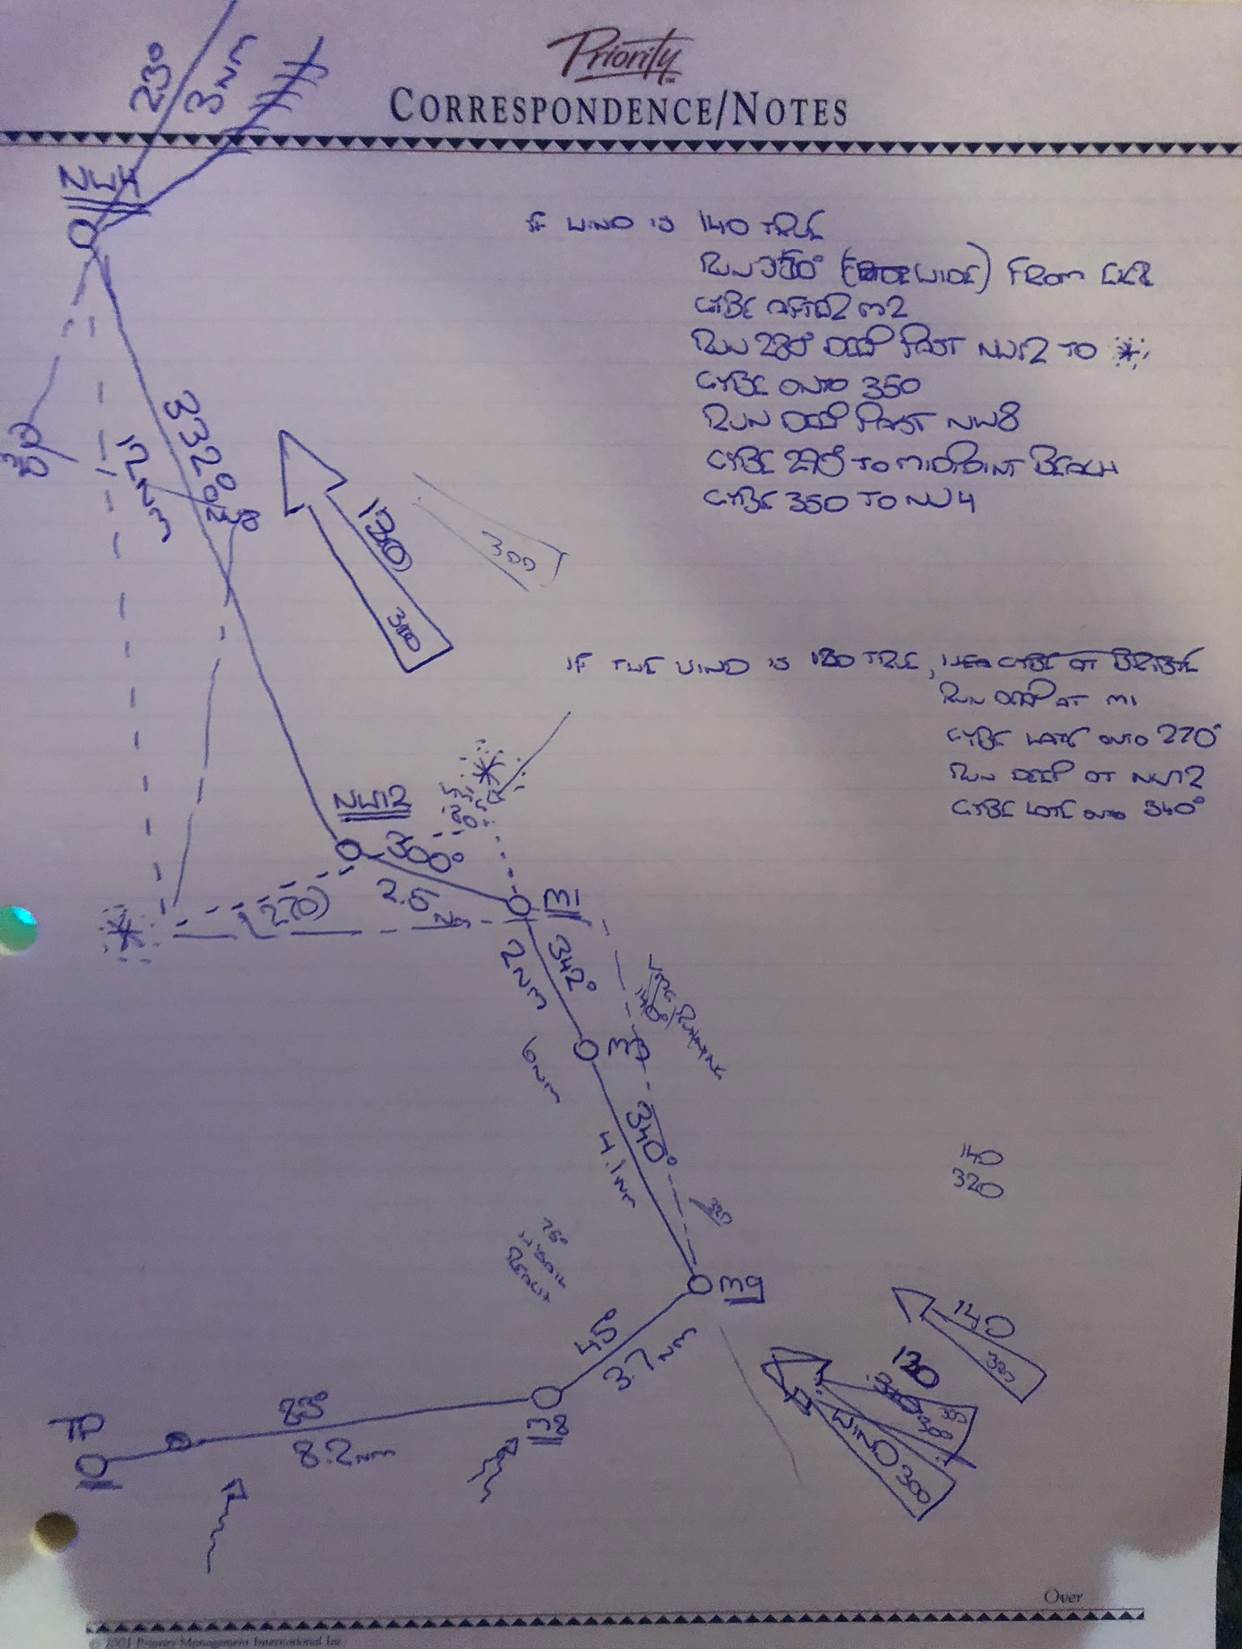 Priority
CORRESPONDENCE/NOTES
230
3NM
NW4
IF WIND IS 140 TRUE
RUN 350° WIDE) FROM
GYBE AFTER M2
RUN 280° DEEP PAST NW12 TO *
GYBE ONTO 350
RUN DEEP PAST NW8
GYBE 270 TO MIDPOINT BEACH
GYBE 350 TO NW4
332°
12NM
130
300
300
IF THE WIND IS TRUE, GYBE AT BRIBIE
RUN DEEP AT M1
GYBE LATE ONTO 270°
RUN DEEP AT NW12
GYBE LATE ONTO 340°
NW12
300°
2.5NM
270
M1
342°
2NM
140°
RUNNING
6NM
340°
4.1NM
140
320
320
75°
REACH
M9
45°
3.7NM
140
320
130
WIND 300
TP
83°
8.2NM
M8
Over
© 2001 Priority Management International Inc.